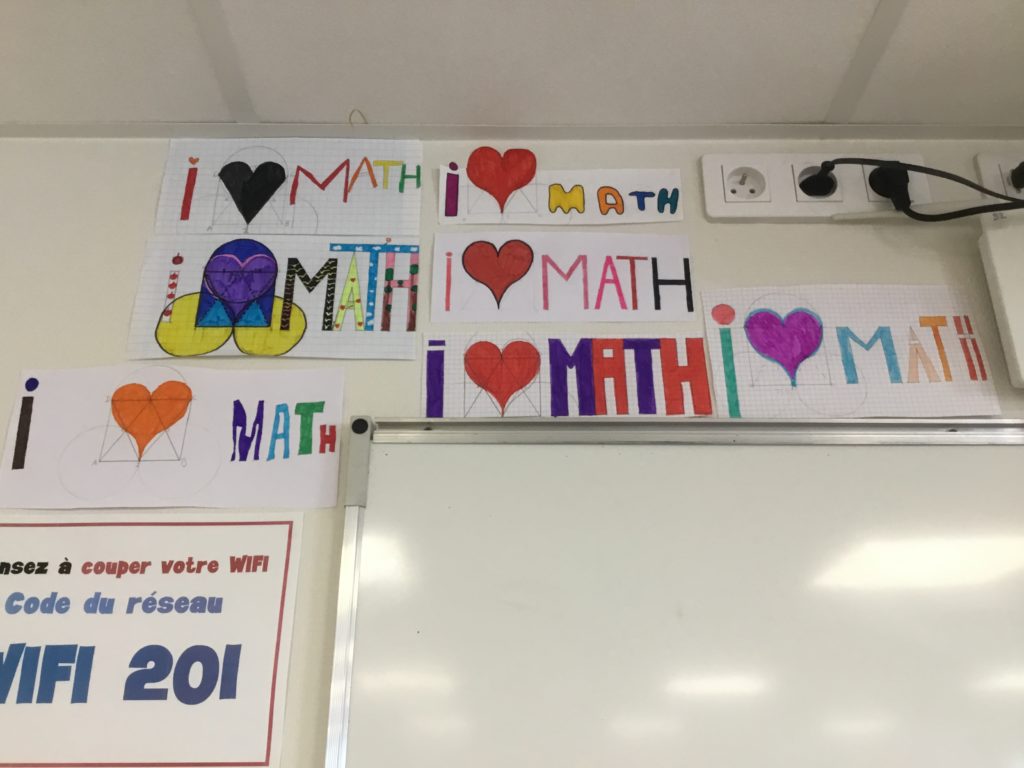 i ♥ MATH
i ♥ MATH
i ♥ MATH
i ♥ MATH
i ♥ MATH
i ♥ MATH
i ♥ MATH
nsez à couper votre WIFI
Code du réseau
WIFI 201